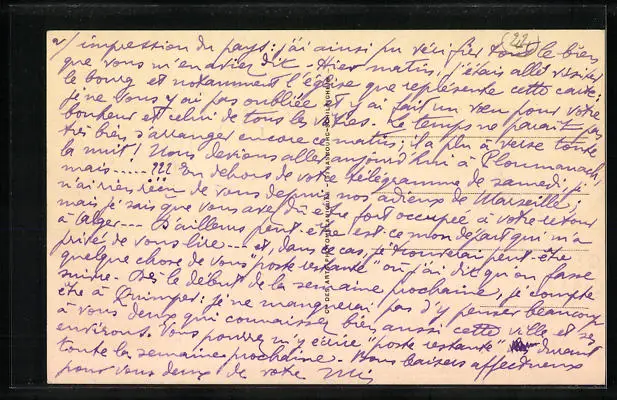 (22)
2/ impression du pays: j'ai ainsi pu vérifier tout le bien
que vous m'en aviez dit. Hier matin, j'étais allé visiter
le bourg et notamment l'église que représente cette carte;
je ne vous y ai pas oubliée et y ai fait un vœu pour votre
bonheur et celui de tous les vôtres. Le temps ne paraît pas
très bien s'arranger encore ce matin; il a plu à verse toute
la nuit! Nous devions aller aujourd'hui à Ploumanach,
mais ..... ??? En dehors de votre télégramme de samedi, je
n'ai rien de vous depuis nos adieux de Marseille;
mais je sais que vous avez dû être fort occupée à votre retour
à Alger --- D'ailleurs peut-être est-ce mon départ qui m'a
privé de vous lire --- et, dans ce cas, je trouverai peut-être
quelque chose de vous "poste restante" où j'ai dit qu'on fasse
suivre. Dès le début de la semaine prochaine, je compte
être à Quimper: je ne manquerai pas d'y penser beaucoup
à vous deux qui connaissez bien aussi cette ville et ses
environs. Vous pourrez m'y écrire "poste restante" durant
toute la semaine prochaine. Bons baisers affectueux
pour vous deux de votre